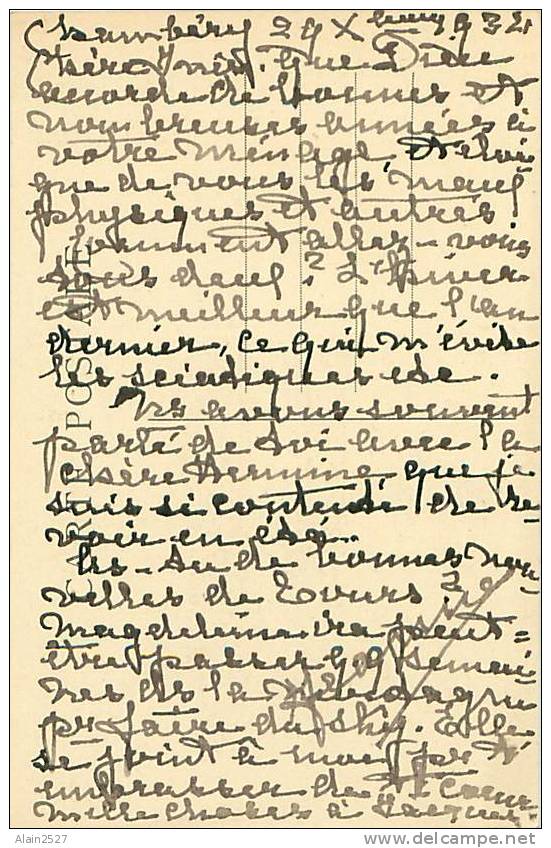 Chambéry 29 Xbre 1932
Chère Amie. Que Dieu
accorde de bonnes et
nombreuses années à
votre ménage, et éloi
gne de vous les maux
physiques et autres
Comment allez-vous
tous deux? L'hiver
est meilleur que l'an
dernier, ce qui m'évite
les sciatiques etc.
Ns avons souvent
parlé de toi avec la
chère Hermine que je
suis si contente de re
voir en été.
As-tu de bonnes nou
velles de Tours?
Magdeleine ira peut=
être passer qq semai
nes ds la montagne
pr faire du sky. Elle
se joint à moi pr t'
embrasser de tt coeur
mille choses à
CARTE POSTALE
Alain2527